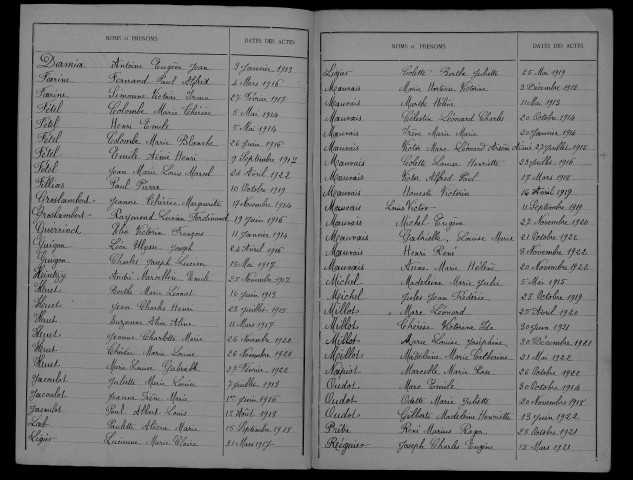 NOMS et PRÉNOMS DATES DES ACTES
Damia Antoine Eugène Jean 3 Janvier 1913
Farine Fernand Paul Alfred 4 Mars 1916
Farine Simonne Victoire Irma 27 Février 1917
Fétel Colombe Marie Thérèse 5 Mai 1914
Fétel Henri Emile 5 Mai 1914
Fétel Colombe Marie Blanche 26 Juin 1916
Fétel Emile Aimé Henri 9 Septembre 1917
Fétel Jean Marie Louis Marcel 24 Avril 1922
Fellias Paul Pierre 10 Octobre 1919
Groslambert Jeanne Thérèse Marguerite 17 Novembre 1914
Groslambert Raymond Lucien Ferdinand 19 Juin 1916
Guerrind Elio Victorin François 11 Janvier 1914
Guigon Léon Ulysse Joseph 24 Avril 1916
Guigon Charles Joseph Lucien 13 Mai 1917
Hintzy André Marcellin Emile 25 Novembre 1917
Huot Berthe Marie 16 Juin 1913
Huot Jean Charles Henri 23 Juillet 1915
Huot Suzanne Aline 11 Mars 1917
Huot Jeanne Charlotte Marie 26 Novembre 1920
Huot Thérèse Marie Louise 26 Novembre 1920
Huot Marie Louise Gabrielle 27 Février 1922
Jacoulot Juliette Marie Louise 7 Juillet 1913
Jacoulot Jeanne Irène Marie 1er Juin 1916
Jacoulot Paul Albert Louis 18 Août 1918
Lab Paulette Alicia Marie 15 Septembre 1918
Ligier Lucienne Marie Claire 31 Mars 1917
NOMS et PRÉNOMS DATES DES ACTES
Ligier Colette Berthe Juliette 25 Mai 1919
Mauvais Marie Hortense Victorine 3 Décembre 1912
Mauvais Marthe Hélène 11 Mai 1913
Mauvais Célestin Léonard Charles 20 Octobre 1914
Mauvais Irène Marie Marie 20 Janvier 1914
Mauvais Victor Marc Léonard Aimé 27 Juillet 1915
Mauvais Colette Louise Henriette 23 Juillet 1916
Mauvais Victor Alfred Paul 17 Mars 1918
Mauvais Honeste Victorin 16 Avril 1919
Mauvais Louis Victor 11 Septembre 1919
Mauvais Michel Eugène 27 Novembre 1920
Mauvais Gabrielle Louise Marie 21 Octobre 1922
Mauvais Henri René 6 Novembre 1922
Mauvais Anne Marie Hélène 20 Novembre 1922
Michel Madeleine Marie Julie 5 Mai 1915
Michel Jules Jean Frédéric 28 Octobre 1919
Millot Marc Léonard 25 Avril 1920
Millot Thérèse Victorine 30 Juin 1921
Millot Marie Louise Joséphine 30 Décembre 1921
Millot Madeleine Marie Catherine 21 Mai 1922
Napiot Marcelle Marie Rose 26 Octobre 1922
Oudot Marc Emile 30 Octobre 1914
Oudot Odette Marie Juliette 20 Novembre 1918
Oudot Gilberte Madeleine Henriette 13 Juin 1922
Prêtre René Marius Roger 28 Octobre 1921
Régnier Joseph Charles Eugène 15 Mars 1921